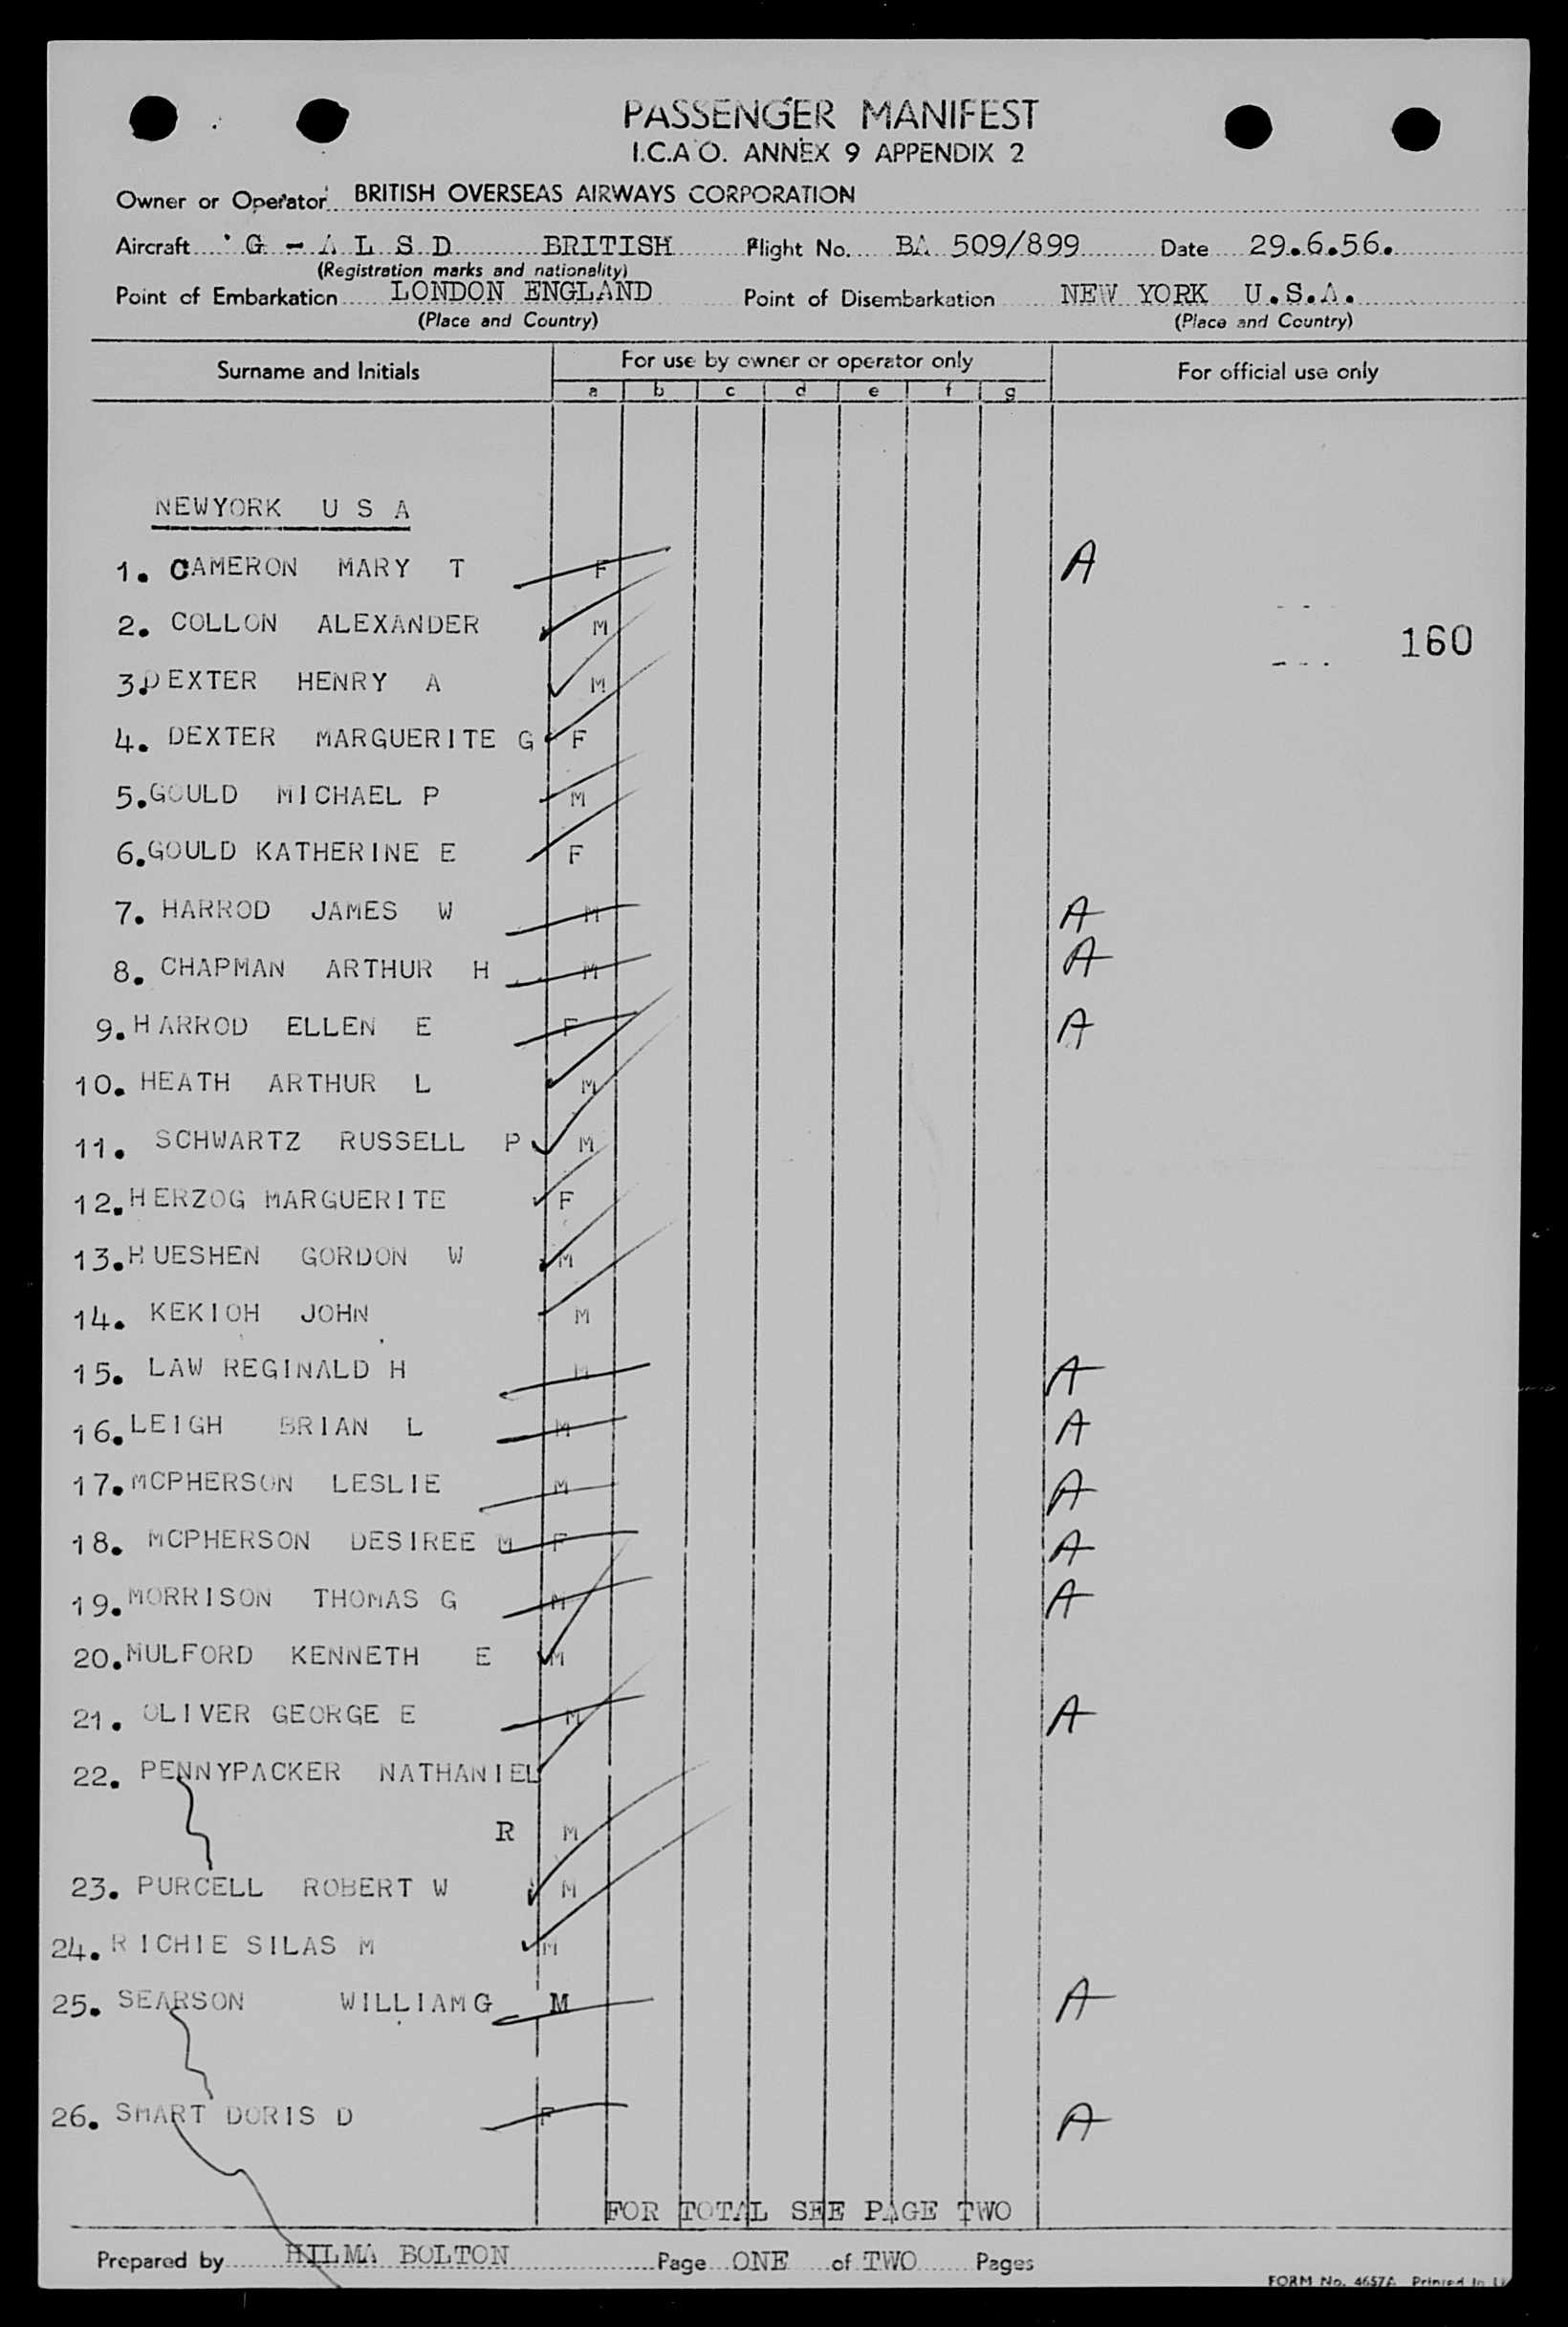 PASSENGER MANIFEST
I.C.A.O. ANNEX 9 APPENDIX 2
Owner or Operator BRITISH OVERSEAS AIRWAYS CORPORATION
Aircraft G - A L S D BRITISH Flight No. BA 509/899 Date 29.6.56.
(Registration marks and nationality)
Point of Embarkation LONDON ENGLAND Point of Disembarkation NEW YORK U.S.A.
(Place and Country) (Place and Country)
Surname and Initials For use by owner or operator only For official use only
a b c d e f g
NEWYORK U S A
1. CAMERON MARY T F A
2. COLLON ALEXANDER M
160
3. DEXTER HENRY A M
4. DEXTER MARGUERITE G F
5. GOULD MICHAEL P M
6. GOULD KATHERINE E F
7. HARROD JAMES W M A
8. CHAPMAN ARTHUR H M A
9. HARROD ELLEN E F A
10. HEATH ARTHUR L M
11. SCHWARTZ RUSSELL P M
12. HERZOG MARGUERITE F
13. HUESHEN GORDON W M
14. KEKIOH JOHN M
15. LAW REGINALD H M A
16. LEIGH BRIAN L M A
17. MCPHERSON LESLIE M A
18. MCPHERSON DESIREE M F A
19. MORRISON THOMAS G M A
20. MULFORD KENNETH E M
21. OLIVER GEORGE E M A
22. PENNYPACKER NATHANIEL
R M
23. PURCELL ROBERT W M
24. RICHIE SILAS M M
25. SEARSON WILLIAMG M A
26. SMART DORIS D F A
FOR TOTAL SEE PAGE TWO
Prepared by HILMA BOLTON Page ONE of TWO Pages
FORM No. 4657A Printed in